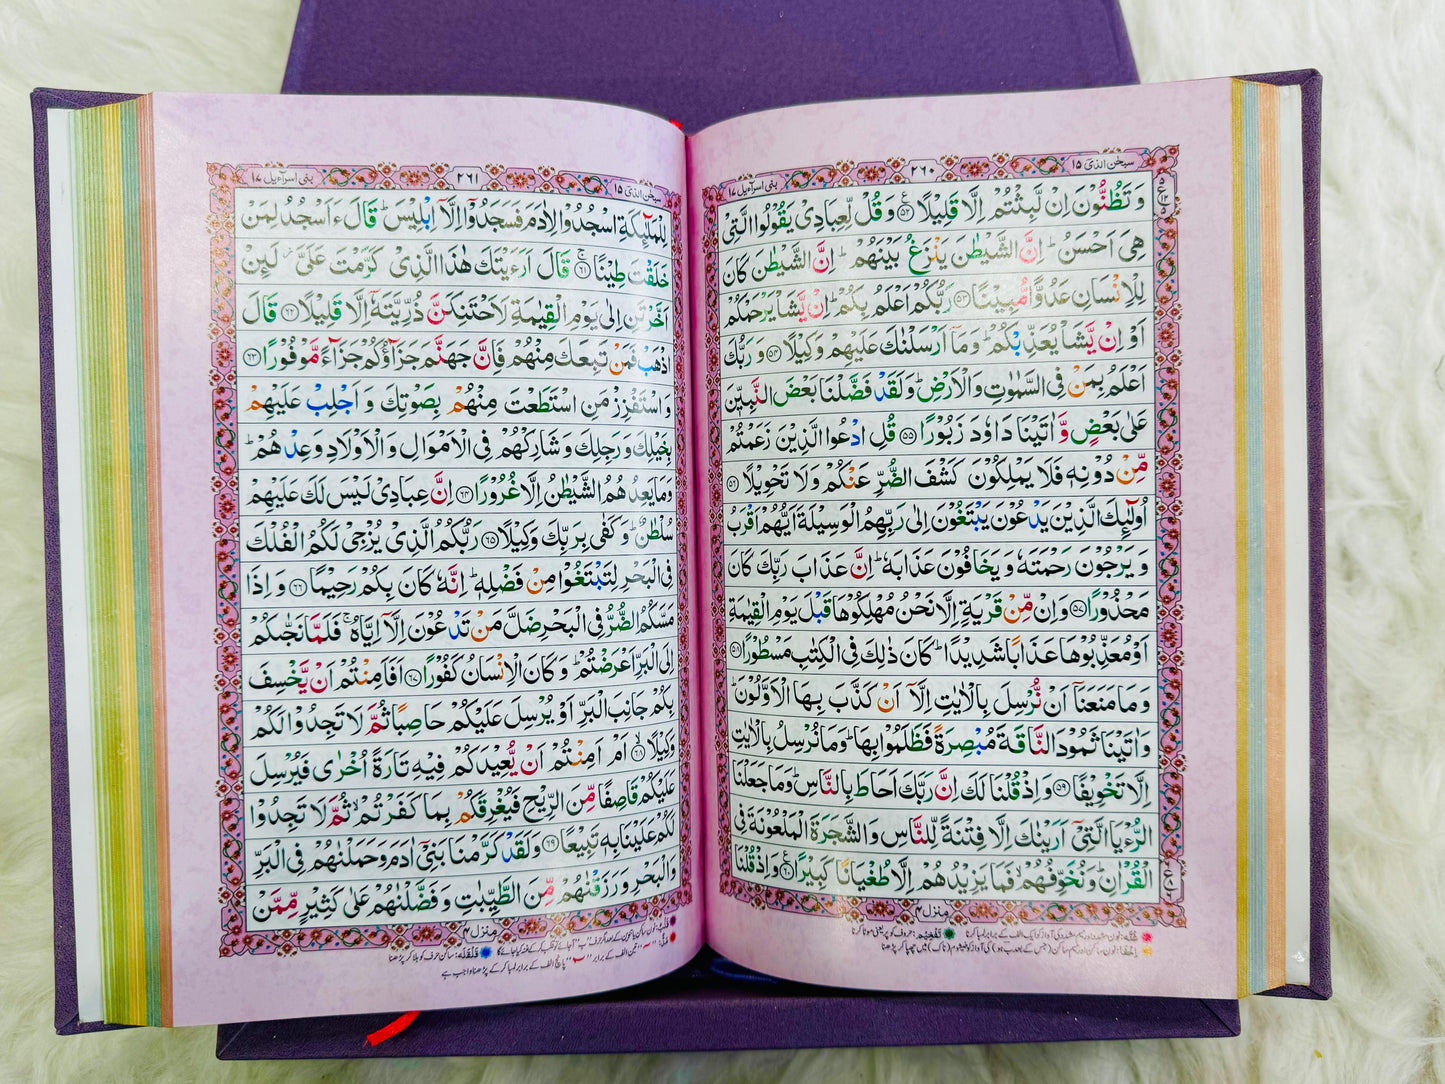 سبحٰن الذیٓ ۱۵ ۲۶۰ بنیٓ اسرآءیل ۱۷
وَ تَظُنُّوْنَ اِنْ لَّبِثْتُمْ اِلَّا قَلِیْلًا ﴿۵۲﴾ وَ قُلْ لِّعِبَادِیْ یَقُوْلُوا الَّتِیْ
هِیَ اَحْسَنُ ؕ اِنَّ الشَّیْطٰنَ یَنْزَغُ بَیْنَهُمْ ؕ اِنَّ الشَّیْطٰنَ كَانَ
لِلْاِنْسَانِ عَدُوًّا مُّبِیْنًا ﴿۵۳﴾ رَبُّكُمْ اَعْلَمُ بِكُمْ ؕ اِنْ یَّشَاْ یَرْحَمْكُمْ
اَوْ اِنْ یَّشَاْ یُعَذِّبْكُمْ ؕ وَ مَاۤ اَرْسَلْنٰكَ عَلَیْهِمْ وَكِیْلًا ﴿۵۴﴾ وَ رَبُّكَ
اَعْلَمُ بِمَنْ فِی السَّمٰوٰتِ وَ الْاَرْضِ ؕ وَ لَقَدْ فَضَّلْنَا بَعْضَ النَّبِیّٖنَ
عَلٰی بَعْضٍ وَّ اٰتَیْنَا دَاوٗدَ زَبُوْرًا ﴿۵۵﴾ قُلِ ادْعُوا الَّذِیْنَ زَعَمْتُمْ
مِّنْ دُوْنِهٖ فَلَا یَمْلِكُوْنَ كَشْفَ الضُّرِّ عَنْكُمْ وَ لَا تَحْوِیْلًا ﴿۵۶﴾
اُولٰٓىِٕكَ الَّذِیْنَ یَدْعُوْنَ یَبْتَغُوْنَ اِلٰی رَبِّهِمُ الْوَسِیْلَةَ اَیُّهُمْ اَقْرَبُ
وَ یَرْجُوْنَ رَحْمَتَهٗ وَ یَخَافُوْنَ عَذَابَهٗ ؕ اِنَّ عَذَابَ رَبِّكَ كَانَ
مَحْذُوْرًا ﴿۵۷﴾ وَ اِنْ مِّنْ قَرْیَةٍ اِلَّا نَحْنُ مُهْلِكُوْهَا قَبْلَ یَوْمِ الْقِیٰمَةِ
اَوْ مُعَذِّبُوْهَا عَذَابًا شَدِیْدًا ؕ كَانَ ذٰلِكَ فِی الْكِتٰبِ مَسْطُوْرًا ﴿۵۸﴾
وَ مَا مَنَعَنَاۤ اَنْ نُّرْسِلَ بِالْاٰیٰتِ اِلَّاۤ اَنْ كَذَّبَ بِهَا الْاَوَّلُوْنَ ؕ
وَ اٰتَیْنَا ثَمُوْدَ النَّاقَةَ مُبْصِرَةً فَظَلَمُوْا بِهَا ؕ وَ مَا نُرْسِلُ بِالْاٰیٰتِ
اِلَّا تَخْوِیْفًا ﴿۵۹﴾ وَ اِذْ قُلْنَا لَكَ اِنَّ رَبَّكَ اَحَاطَ بِالنَّاسِ ؕ وَ مَا جَعَلْنَا
الرُّءْیَا الَّتِیْۤ اَرَیْنٰكَ اِلَّا فِتْنَةً لِّلنَّاسِ وَ الشَّجَرَةَ الْمَلْعُوْنَةَ فِی
الْقُرْاٰنِ ؕ وَ نُخَوِّفُهُمْ ۙ فَمَا یَزِیْدُهُمْ اِلَّا طُغْیَانًا كَبِیْرًا ﴿۶۰﴾ وَ اِذْ قُلْنَا
منزل ۴
سبحٰن الذیٓ ۱۵ ۲۶۱ بنیٓ اسرآءیل ۱۷
لِلْمَلٰٓىِٕكَةِ اسْجُدُوْا لِاٰدَمَ فَسَجَدُوْۤا اِلَّاۤ اِبْلِیْسَ ؕ قَالَ ءَاَسْجُدُ لِمَنْ
خَلَقْتَ طِیْنًا ﴿۶۱﴾ۚ قَالَ اَرَءَیْتَكَ هٰذَا الَّذِیْ كَرَّمْتَ عَلَیَّ ؗ لَىِٕنْ
اَخَّرْتَنِ اِلٰی یَوْمِ الْقِیٰمَةِ لَاَحْتَنِكَنَّ ذُرِّیَّتَهٗۤ اِلَّا قَلِیْلًا ﴿۶۲﴾ قَالَ
اذْهَبْ فَمَنْ تَبِعَكَ مِنْهُمْ فَاِنَّ جَهَنَّمَ جَزَآؤُكُمْ جَزَآءً مَّوْفُوْرًا ﴿۶۳﴾
وَ اسْتَفْزِزْ مَنِ اسْتَطَعْتَ مِنْهُمْ بِصَوْتِكَ وَ اَجْلِبْ عَلَیْهِمْ
بِخَیْلِكَ وَ رَجِلِكَ وَ شَارِكْهُمْ فِی الْاَمْوَالِ وَ الْاَوْلَادِ وَ عِدْهُمْ ؕ
وَ مَا یَعِدُهُمُ الشَّیْطٰنُ اِلَّا غُرُوْرًا ﴿۶۴﴾ اِنَّ عِبَادِیْ لَیْسَ لَكَ عَلَیْهِمْ
سُلْطٰنٌ ؕ وَ كَفٰی بِرَبِّكَ وَكِیْلًا ﴿۶۵﴾ رَبُّكُمُ الَّذِیْ یُزْجِیْ لَكُمُ الْفُلْكَ
فِی الْبَحْرِ لِتَبْتَغُوْا مِنْ فَضْلِهٖ ؕ اِنَّهٗ كَانَ بِكُمْ رَحِیْمًا ﴿۶۶﴾ وَ اِذَا
مَسَّكُمُ الضُّرُّ فِی الْبَحْرِ ضَلَّ مَنْ تَدْعُوْنَ اِلَّاۤ اِیَّاهُ ۚ فَلَمَّا نَجّٰىكُمْ
اِلَی الْبَرِّ اَعْرَضْتُمْ ؕ وَ كَانَ الْاِنْسَانُ كَفُوْرًا ﴿۶۷﴾ اَفَاَمِنْتُمْ اَنْ یَّخْسِفَ
بِكُمْ جَانِبَ الْبَرِّ اَوْ یُرْسِلَ عَلَیْكُمْ حَاصِبًا ثُمَّ لَا تَجِدُوْا لَكُمْ
وَكِیْلًا ﴿۶۸﴾ۙ اَمْ اَمِنْتُمْ اَنْ یُّعِیْدَكُمْ فِیْهِ تَارَةً اُخْرٰی فَیُرْسِلَ
عَلَیْكُمْ قَاصِفًا مِّنَ الرِّیْحِ فَیُغْرِقَكُمْ بِمَا كَفَرْتُمْ ۙ ثُمَّ لَا تَجِدُوْا
لَكُمْ عَلَیْنَا بِهٖ تَبِیْعًا ﴿۶۹﴾ وَ لَقَدْ كَرَّمْنَا بَنِیْۤ اٰدَمَ وَ حَمَلْنٰهُمْ فِی الْبَرِّ
وَ الْبَحْرِ وَ رَزَقْنٰهُمْ مِّنَ الطَّیِّبٰتِ وَ فَضَّلْنٰهُمْ عَلٰی كَثِیْرٍ مِّمَّنْ
منزل ۴